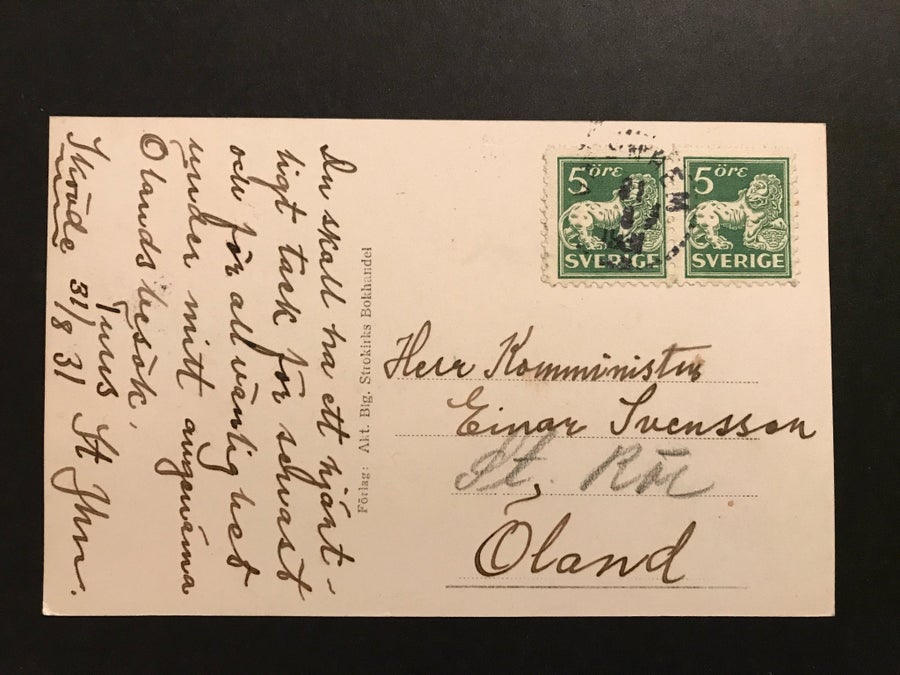 Du skall ha ett hjärt-
ligt tack för senast
och för all vänlighet
under mitt angenäma
Ölandsbesök.
Skövde 31/8 31
Förlag: Akt. Blg. Strokirks Bokhandel
5 ÖRE
SVERIGE
5 ÖRE
SVERIGE
Herr Komminister
Einar Svensson
St. Rör
Öland